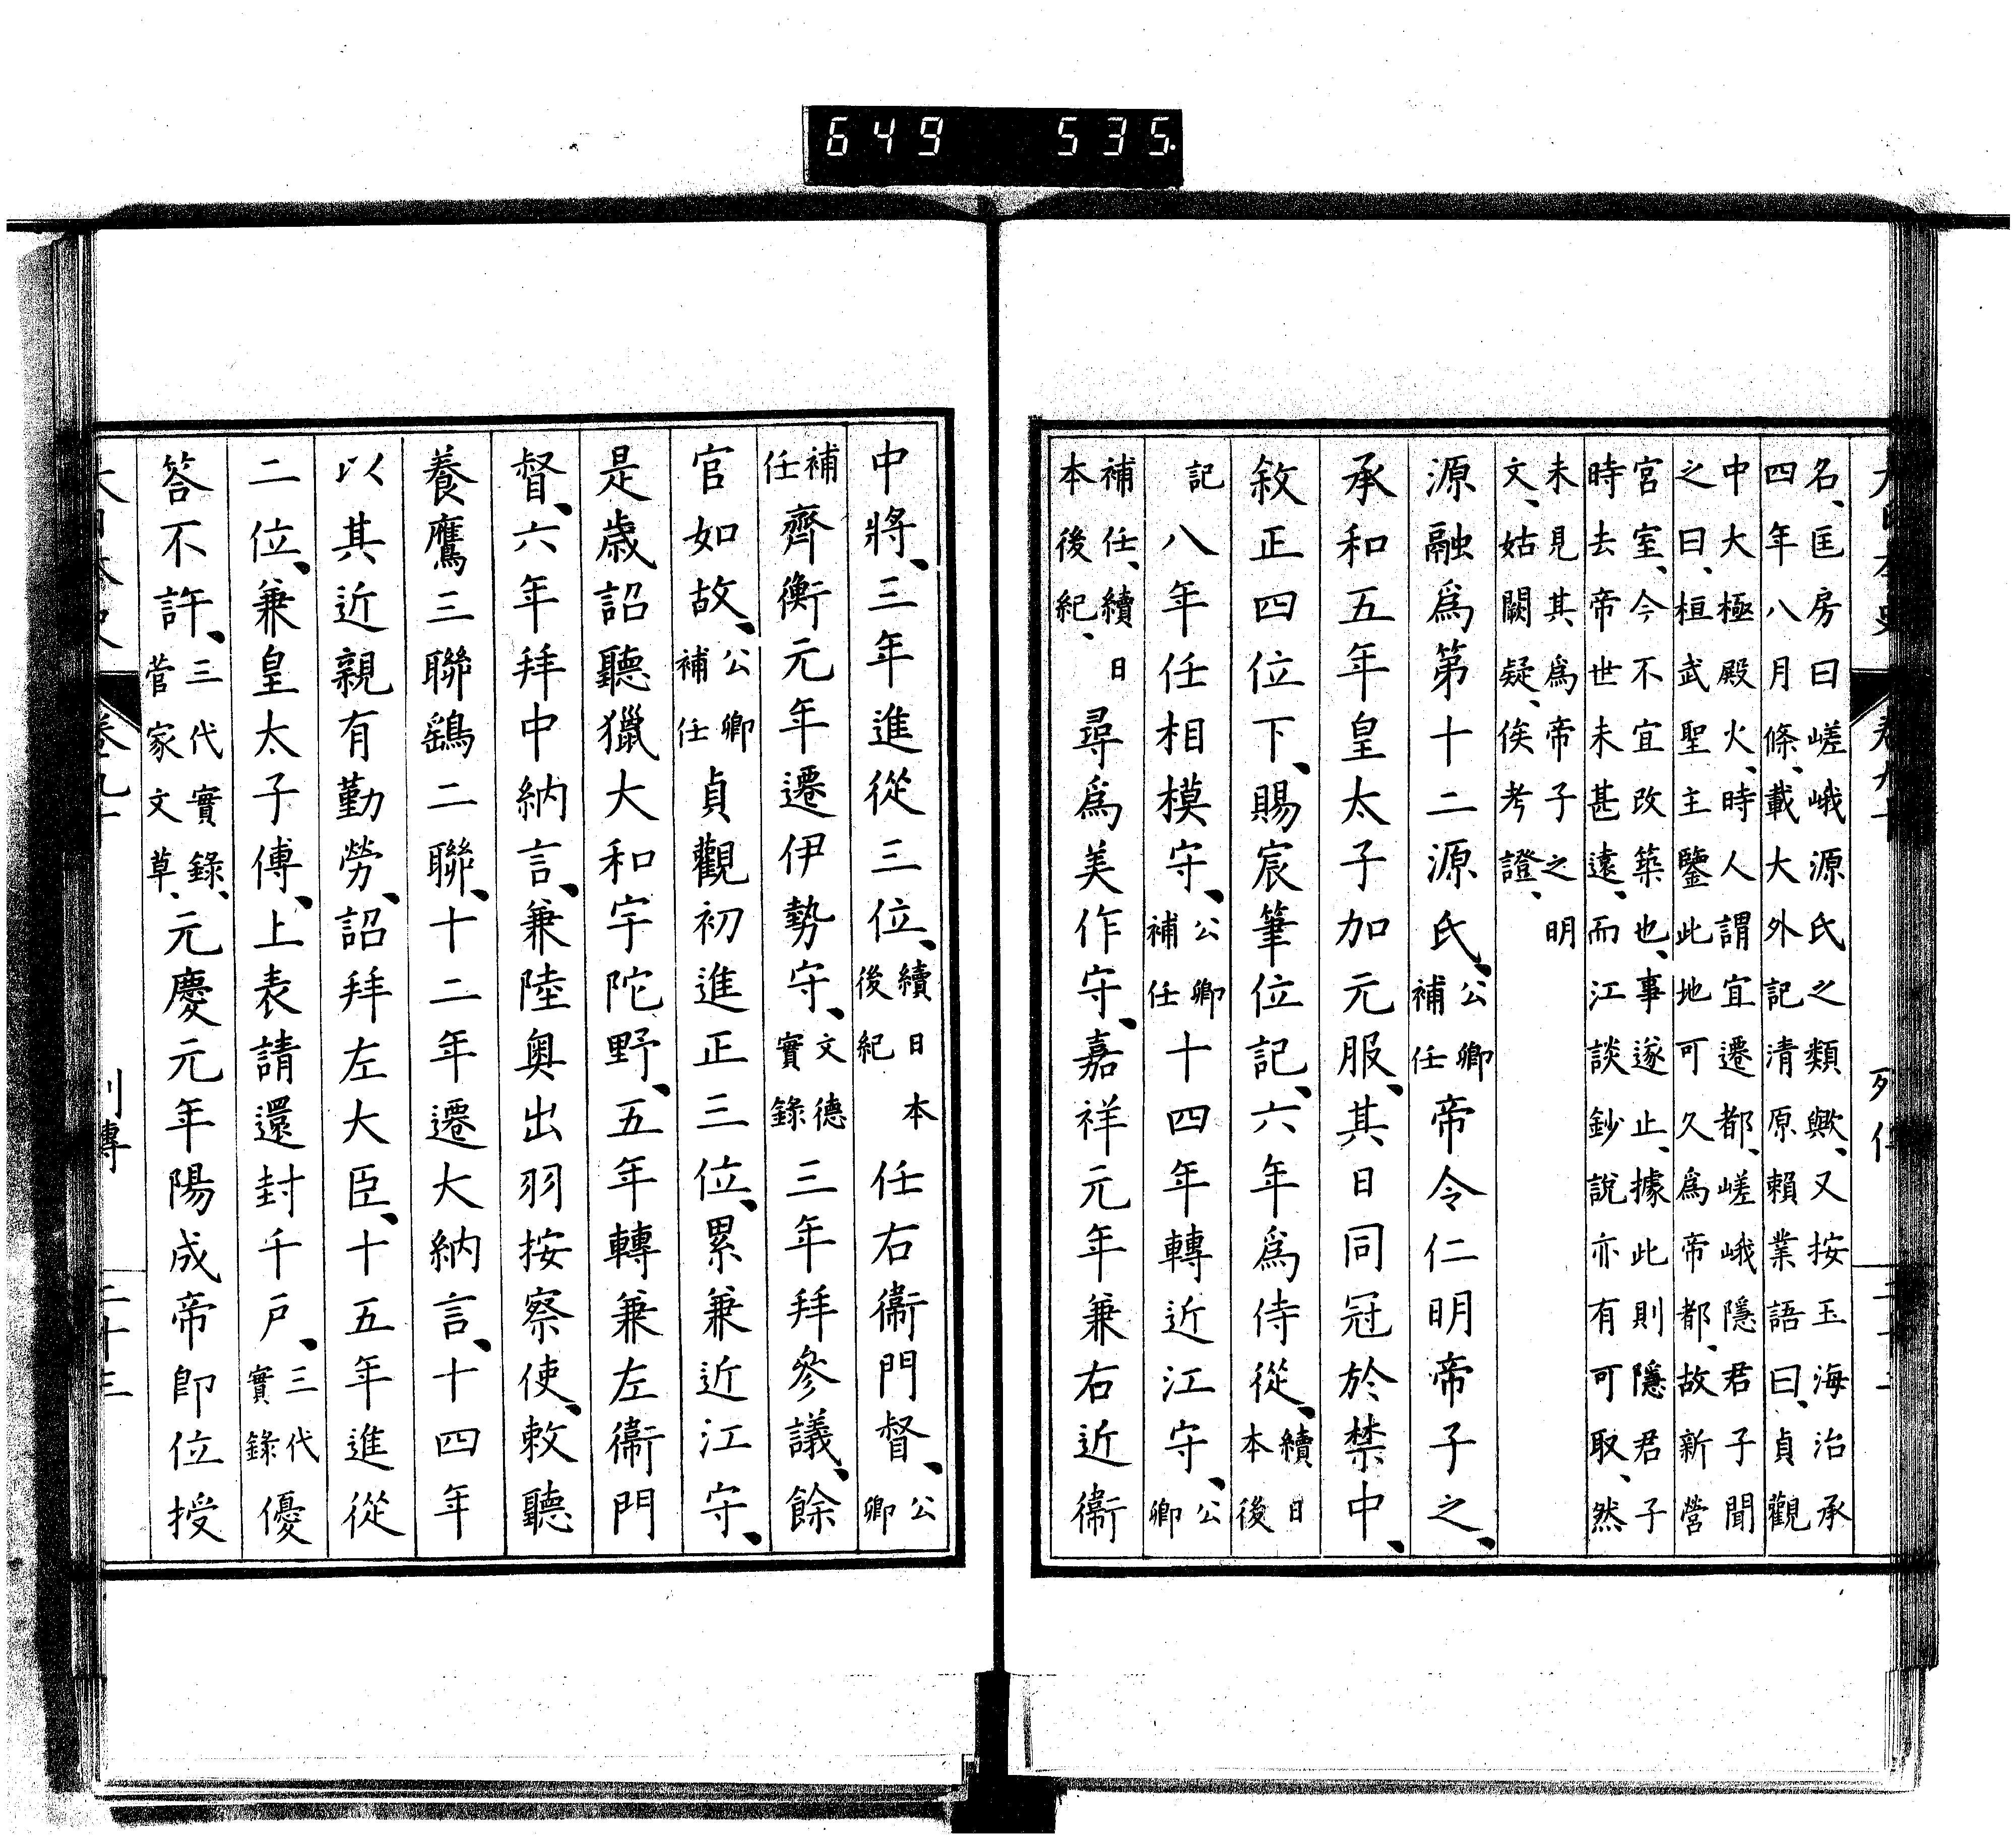 649 535.
名、匡房曰嵯峨源氏之類歟、又按玉海治承
四年八月條、載大外記清原賴業語曰、貞觀
中大極殿火、時人謂宜遷都、嵯峨隱君子聞
之曰、桓武聖主鑒此地可久爲帝都、故新營
宮室、今不宜改築也、事遂止、據此則隱君子
時去帝世未甚遠、而江談鈔說亦有可取、然
未見其爲帝子之明
文、姑闕疑、俟考證、
源融爲第十二源氏、公卿補任帝令仁明帝子之、
承和五年皇太子加元服、其日同冠於禁中、
敘正四位下、賜宸筆位記、六年爲侍從、續日本後
記八年任相模守、公卿補任十四年轉近江守、公卿
補任、續日本後紀、尋爲美作守、嘉祥元年兼右近衞
中將、三年進從三位、續日本後紀任右衞門督、公卿
補任齊衡元年遷伊勢守、文德實錄三年拜參議、餘
官如故、公卿補任貞觀初進正三位、累兼近江守、
是歲詔聽獵大和宇陀野、五年轉兼左衞門
督、六年拜中納言、兼陸奧出羽按察使、敕聽
養鷹三聯鷂二聯、十二年遷大納言、十四年
以其近親有勤勞、詔拜左大臣、十五年進從
二位、兼皇太子傅、上表請還封千戶、三代實錄優
答不許、三代實錄、菅家文草、元慶元年陽成帝卽位授